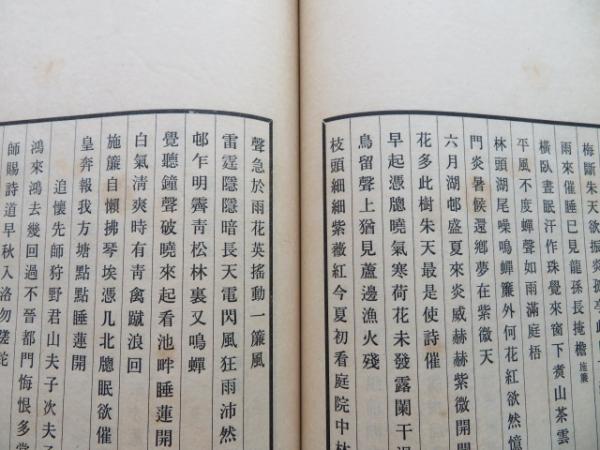 梅斷朱天欲振炎孤亭
雨來催睡已見龍孫長掩檐施簾
橫臥晝眠汗作珠覺來窗下煮山茶雲
平風不度蟬聲如雨滿庭梧
林頭湖尾噪鳴蟬簾外何花紅欲然憶
門炎暑候還鄉夢在紫微天
六月湖邨盛夏來炎威赫赫紫微開
花多此樹朱天最是使詩催
早起憑牕曉氣寒荷花未發露闌干
鳥留聲上猶見蘆邊漁火殘
枝頭細細紫薇紅今夏初看庭院中
聲急於雨花英搖動一簾風
雷霆隱隱暗長天電閃風狂雨沛然
邨乍明霽靑松林裏又鳴蟬
覺聽鐘聲破曉來起看池畔睡蓮開
白氣淸爽時有靑禽蹴浪回
施簾自懶拂琴埃憑几北牕眠欲催
皇奔報我方塘點點睡蓮開
追懷先師狩野君山夫子次夫子
鴻來鴻去幾回過不晉都門悔恨多
師賜詩道早秋入洛勿蹉跎